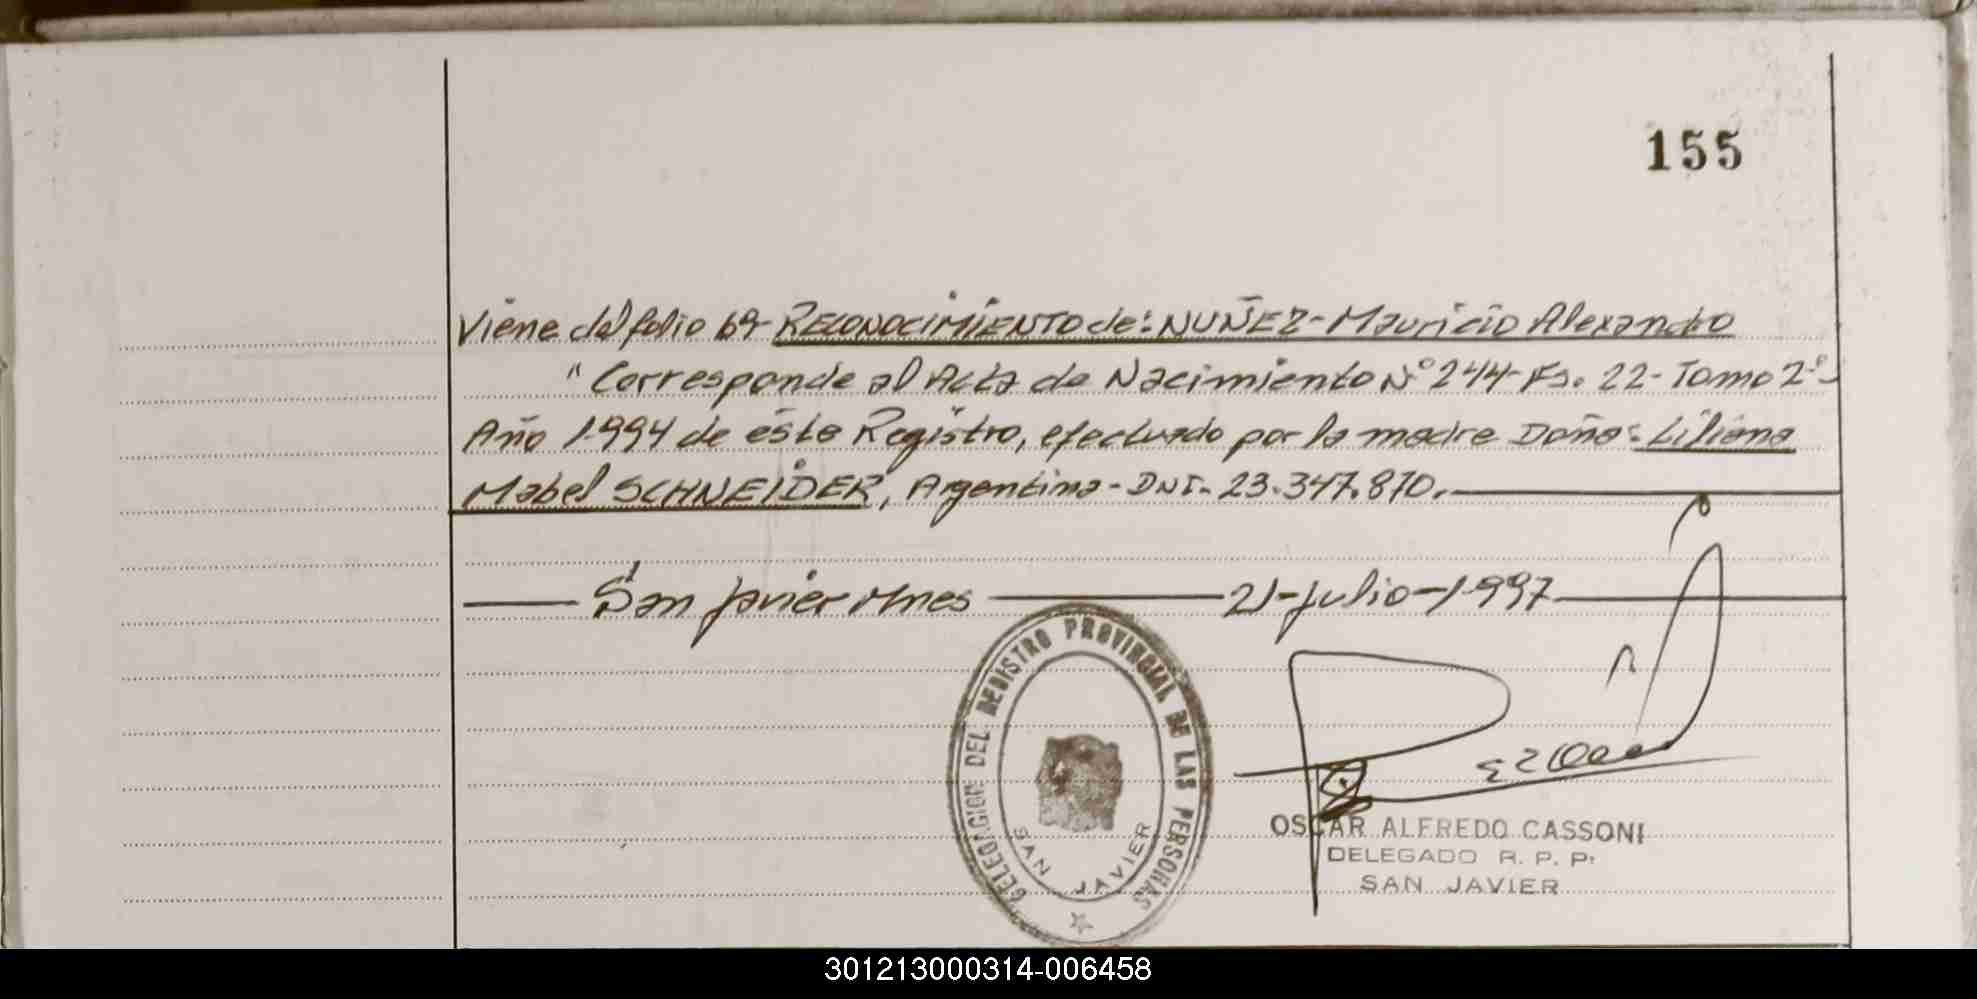 155
Viene del folio 69- RECONOCIMIENTO de: NUÑEZ- Mauricio Alexandro
" Corresponde al Acta de Nacimiento Nº 244- Fs. 22- Tomo 2º-
Año 1.994 de este Registro, efectuado por la madre Doña: Liliana
Mabel SCHNEIDER, Argentina- DNI- 23.347.870.
San Javier Mnes 21-Julio-1.997
DELEGACION DEL REGISTRO PROVINCIAL DE LAS PERSONAS
SAN JAVIER
OSCAR ALFREDO CASSONI
DELEGADO R. P. P.
SAN JAVIER
301213000314-006458